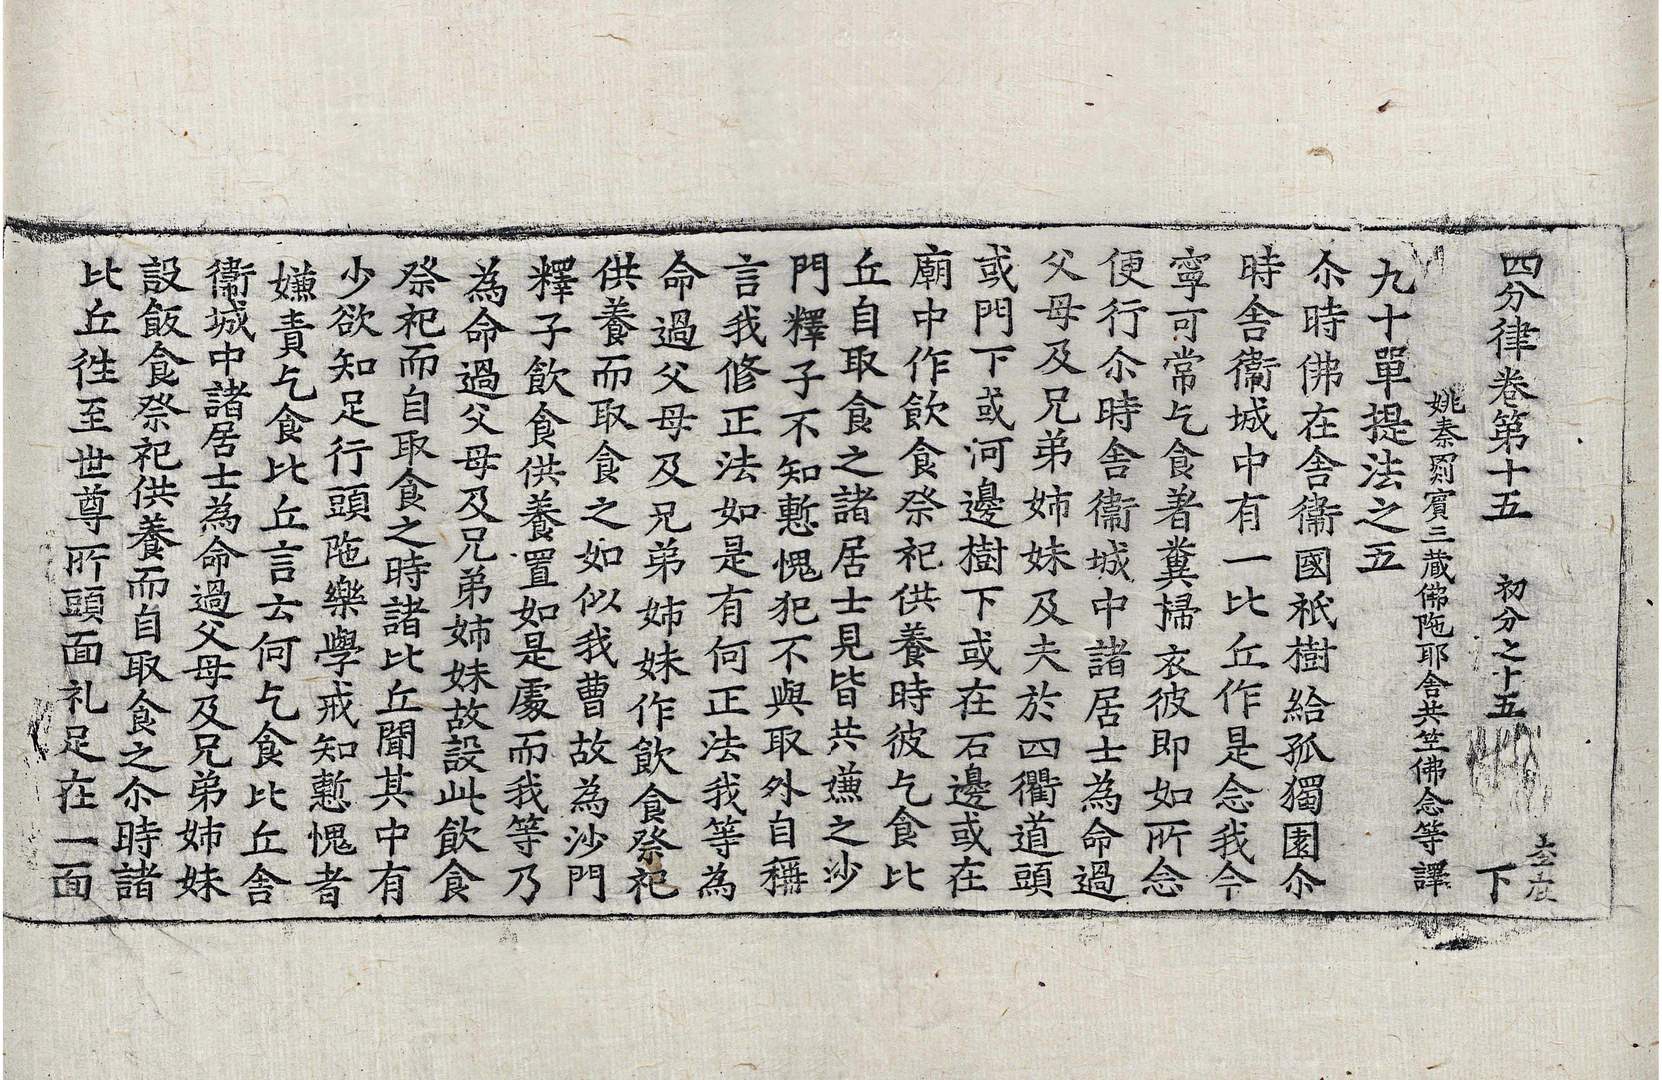 四分律卷第十五 初分之十五 下
姚秦罽賓三藏佛陁耶舍共竺佛念等譯
九十單提法之五
尒時佛在舍衞國祇樹給孤獨園尒
時舍衞城中有一比丘作是念我今
寧可常乞食著糞掃衣彼即如所念
便行尒時舍衞城中諸居士為命過
父母及兄弟姊妹及夫於四衢道頭
或門下或河邊樹下或在石邊或在
廟中作飲食祭祀供養時彼乞食比
丘自取食之諸居士見皆共嫌之沙
門釋子不知慙愧犯不與取外自稱
言我修正法如是有何正法我等為
命過父母及兄弟姊妹作飲食祭祀
供養而取食之如似我曹故為沙門
釋子飲食供養置如是處而我等乃
為命過父母及兄弟姊妹故設此飲食
祭祀而自取食之時諸比丘聞其中有
少欲知足行頭陁樂學戒知慙愧者
嫌責乞食比丘言云何乞食比丘舍
衞城中諸居士為命過父母及兄弟姊妹
設飯食祭祀供養而自取食之尒時諸
比丘徃至世尊所頭面礼足在一面